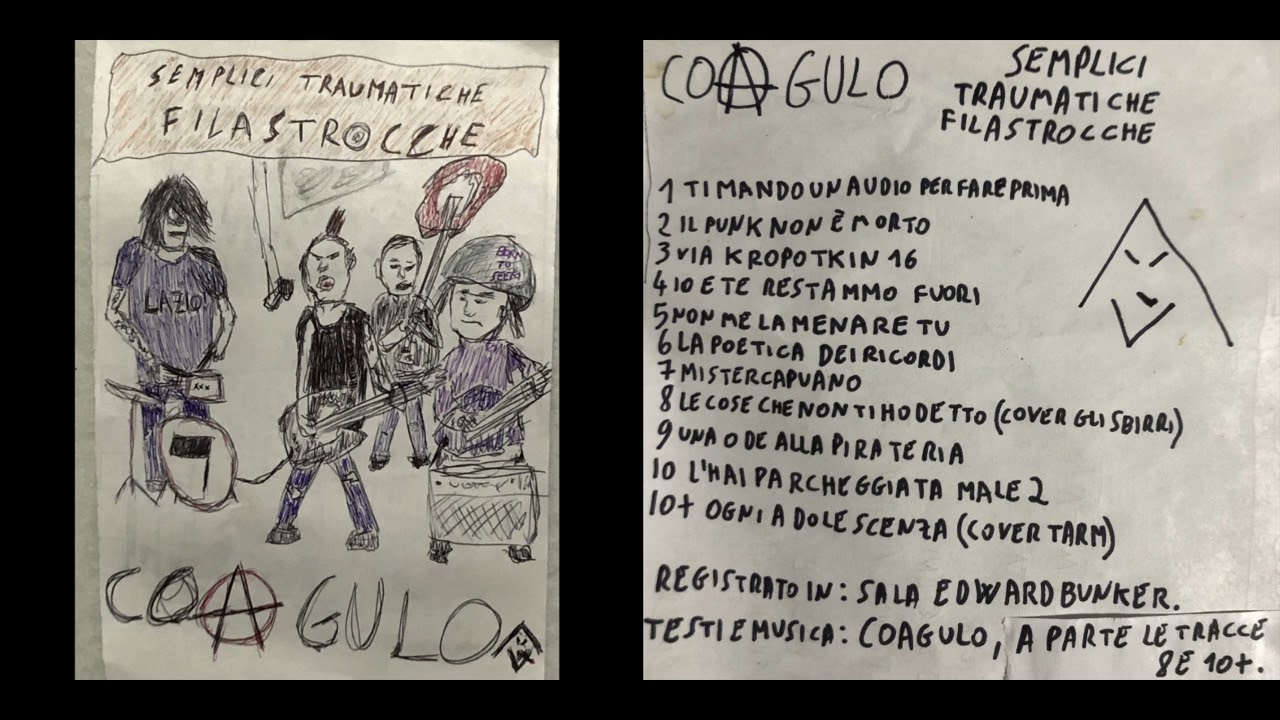 SEMPLICI TRAUMATICHE
FILASTROCCHE
LAZIO
BORN
TO
SEEM
XXX
7
COAGULO
COAGULO
SEMPLICI
TRAUMATICHE
FILASTROCCHE
1 TI MANDO UN AUDIO PER FARE PRIMA
2 IL PUNK NON È MORTO
3 VIA KROPOTKIN 16
4 IO E TE RESTAMMO FUORI
5 NON ME LA MENARE TU
6 LA POETICA DEI RICORDI
7 MISTER CAPUANO
8 LE COSE CHE NON TI HO DETTO (COVER GLI SBIRRI)
9 UNA ODE ALLA PIRATERIA
10 L'HAI PARCHEGGIATA MALE 2
10+ OGNI ADOLESCENZA (COVER TARM)
REGISTRATO IN: SALA EDWARD BUNKER.
TESTI E MUSICA: COAGULO, A PARTE LE TRACCE
8 E 10+.